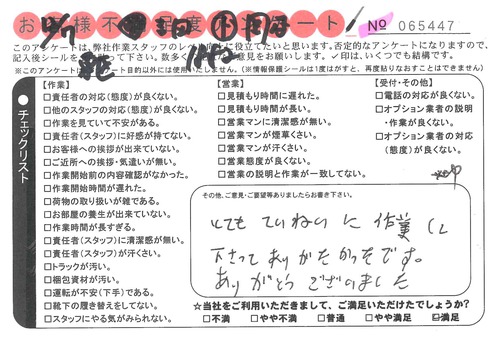 お客様不満足度アンケート
№ 065447
このアンケートは、弊社作業スタッフのレベル向上に役立てたいと思います。否定的なアンケートになりますので、
記入後シールを貼って下さい。数多くのご意見をお願いします。✓印は、いくつでも結構です。
※このアンケートは、アンケート目的以外には使用いたしません。(※情報保護シールは1度はがすと、再度貼りなおすことはできません)
チェックリスト
【作業】
□責任者の対応(態度)が良くない。
□他のスタッフの対応(態度)が良くない。
□作業を見ていて不安がある。
□責任者(スタッフ)に好感が持てない。
□お客様への挨拶が出来ていない。
□ご近所への挨拶・気遣いが無い。
□作業開始前の内容確認がなかった。
□作業開始時間が遅れた。
□荷物の取り扱いが雑である。
□お部屋の養生が出来ていない。
□作業時間が長すぎる。
□責任者(スタッフ)に清潔感が無い。
□責任者(スタッフ)が汗くさい。
□トラックが汚い。
□梱包資材が汚い。
□運転が不安(下手)である。
□靴下の履き替えをしてない。
□スタッフにやる気がみられない。
【営業】
□見積もり時間に遅れた。
□見積もり時間が長い。
□営業マンに清潔感が無い。
□営業マンが煙草くさい。
□営業マンが汗くさい。
□営業態度が良くない。
□営業の説明と作業が一致してない。
【受付・その他】
□電話の対応が良くない。
□オプション業者の説明
・作業が良くない。
□オプション業者の対応
(態度)が良くない。
その他、ご意見・ご要望等ありましたらお書き下さい。
とても ていねいに 作業して
下さって ありがたかったです。
ありがとう ございました
☆当社をご利用いただきまして、ご満足いただけたでしょうか?
□不満 □やや不満 □普通 □やや満足 ☑満足